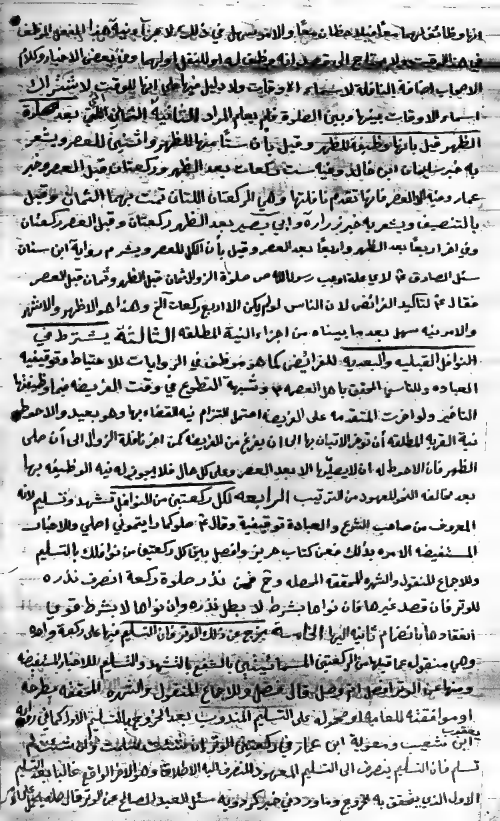 في هذا الوقت ولا يحتاج الى قصد انه موظف له او للمقل اولهما وفي بعض الاخبار وكلام
الاصحاب اضافة النافلة لاسماء الاوقات ولا دليل فيها على انها للوقت لاشتراك
اسماء الاوقات بينها وبين الصلوة فلم يعلم المراد الثانية الثمان التي بعد صلوة
الظهر قيل بانها وظيفة للظهر وقيل بأن ستا منها للظهر واثنين للعصر ويشعر
به خبر سليمان ابن خالد وفيه ست ركعات بعد الظهر وركعتان قبل العصر وخبر
عمار وفيه الا العصر فانها تقدم نافلتها وهي الركعتان اللتان تمت بهما الثمان وقيل
بالتنصيف ويشعر به خبر زرارة وابي بصير بعد الظهر ركعتان وقبل العصر ركعتان
وفي اخر اربعا بعد الظهر واربعا بعد العصر وقيل بأن الكل للعصر ويشرم رواية ابن سنان
سئل الصادق ع لاي علة اوجب رسول الله ص صلوة الزوال ثمان قبل الظهر وثمان قبل العصر
فقال ع لتاكيد الفرائض لان الناس لو لم يكن الا اربع ركعات الخ وهذا هو الاظهر والاشهر
والامر فيه سهل بعد ما بيناه من اجزاء النية المطلقة الثالثة يشترط في
النوافل القبلية والبعدية للفرائض كما هو موظف في الروايات للاحتياط وتوقيفية
العبادة وللتاسي الموثق باهل العصمة ع وشبهة التطوع في وقت الفريضة فيها وظيفتها
التاخير ولو اخرت المتقدمة على الفريضة احتمل التزام نية القضاء بها وهو بعيد والاحوط
نية القربة المطلقة أن توخر الاتيان بها الى ان يفرغ من الفريضة كمن اخر نافلة الزوال الى أن صلى
الظهر فان الاحوط له ان لا يصليها الا بعد العصر وعلى كل حال فلا يجوز له نية الوظيفة بها
بعد مخالفة النحو المعهود من الترتيب الرابعة لكل ركعتين من النوافل تشهد وتسليم لانه
المعروف من صاحب الشرع والعبادة توقيفية وقال ع صلوا كما رايتموني اصلي وللاخبار
المستفيضة الامرة بذلك فعن كتاب حريز وافصل بين كل ركعتين من نوافلك بالتسليم
وللاجماع المنقول والشهرة المحققة المحصلة وح فمن نذر صلوة ركعة انصرف نذره
للوتر فان قصد غيرها فان نواها بشرط لا بطل نذره وان نواها لا بشرط قوي
انعقادها بانضمام ثانية اليها الخامسة يخرج عن ذلك الوتر فان التسليم فيها على ركعة واحدة
وهي منفصلة عما قبلها من الركعتين المسماتين بالشفع بالتشهد والتسليم للاخبار المستفيضة
ومنها عن الوتر افصل ام وصل قال فصل وللاجماع المنقول والشهرة المحققة مطرحة
او موافقة للعامة او محمولة على التسليم المندوب بعد الخروج بالتسليم الاول كما في رواية
يعقوب
ابن شعيب ومعوية ابن عمار في ركعتي الوتر ان شئت سلمت وان شئت لم
تسلم فان التسليم ينصرف الى التسليم المعهود المنصرف اليه الاطلاق وهو الاخر الواقع غالبا بعد التسليم
الاول الذي يتحقق به الخروج وما ورد في خبر كردويه سئل العبد الصالح عن الوتر فقال صله